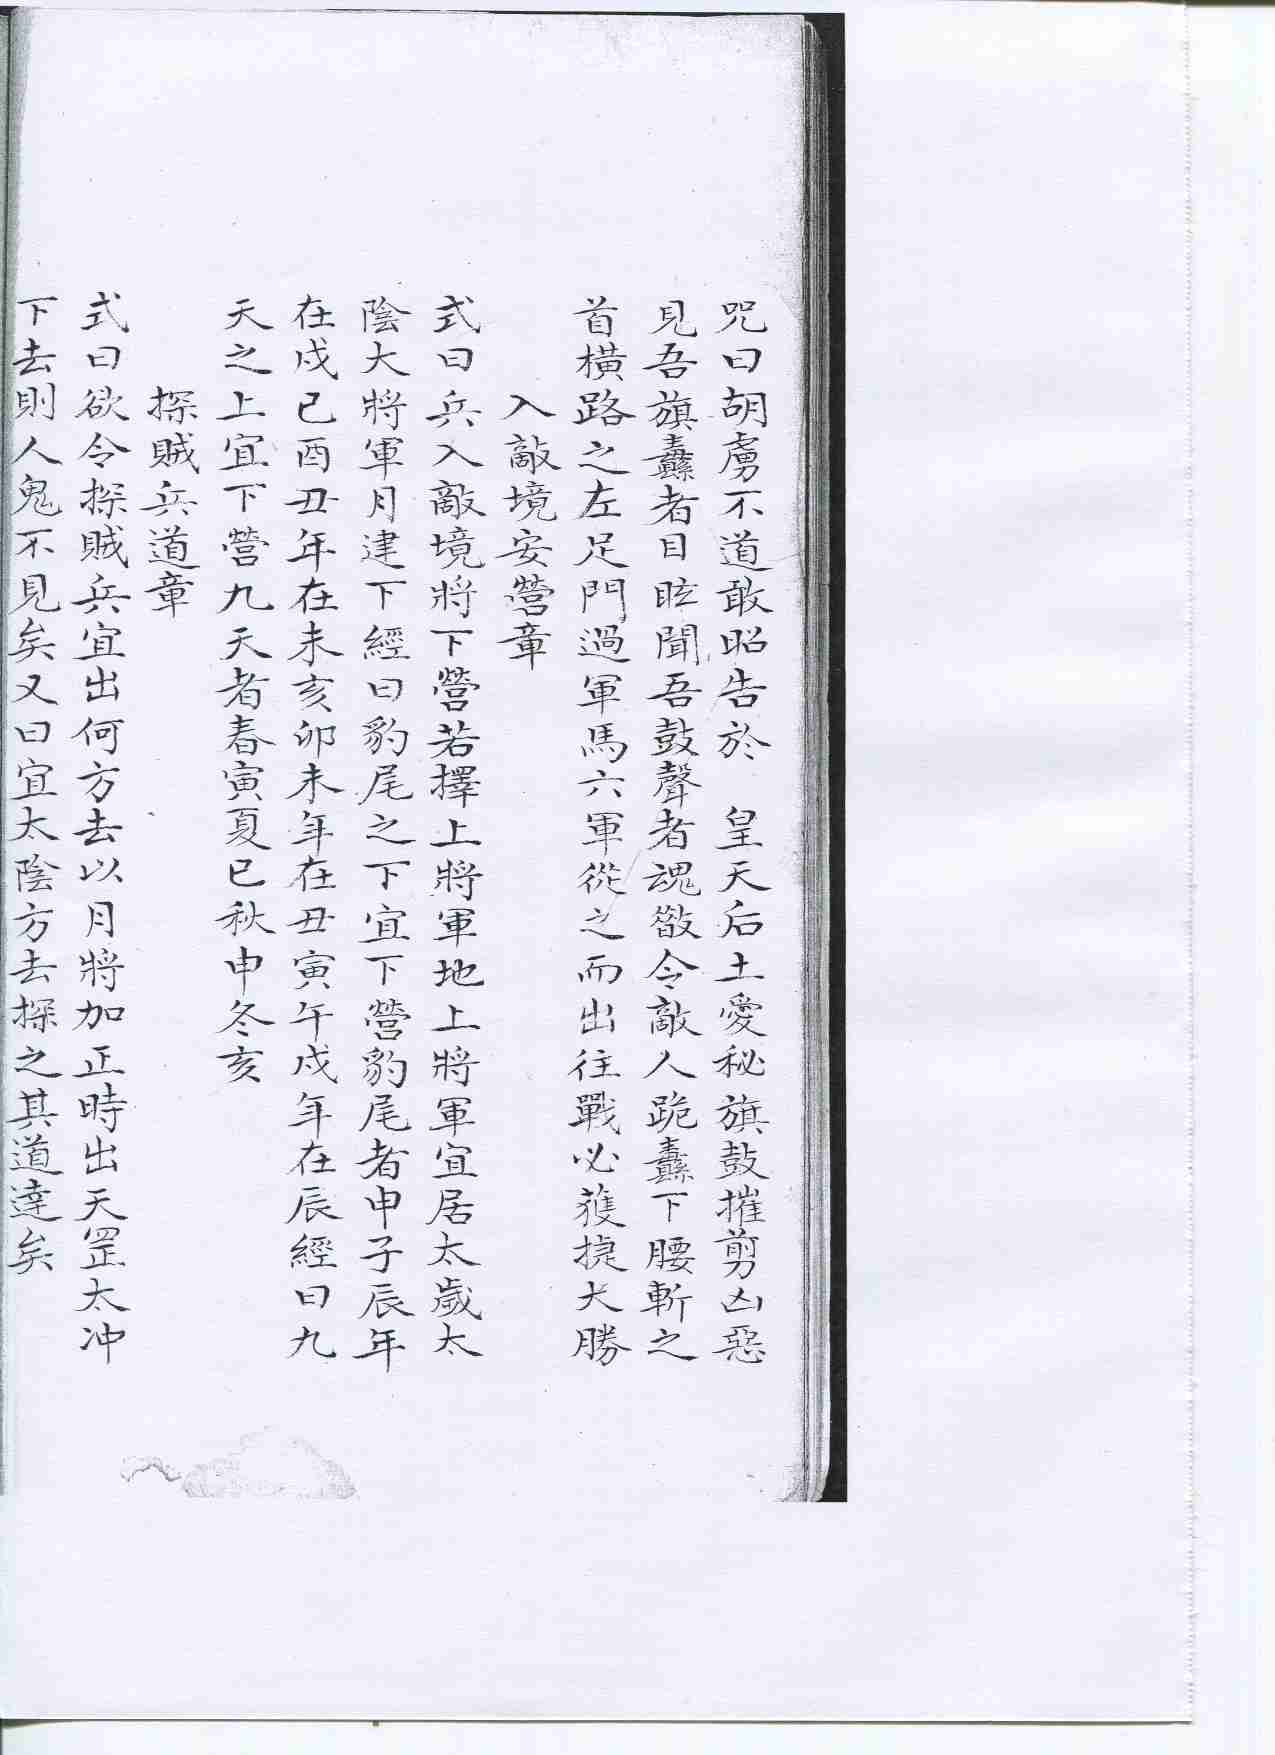 咒曰胡虜不道敢昭告於　皇天后土愛秘旗鼓摧剪凶惡
見吾旗纛者目眩聞吾鼓聲者魂散令敵人跪纛下腰斬之
首橫路之左足門過軍馬六軍從之而出往戰必獲捷大勝
入敵境安營章
式曰兵入敵境將下營若擇上將軍地上將軍宜居太歲太
陰大將軍月建下經曰豹尾之下宜下營豹尾者申子辰年
在戌巳酉丑年在未亥卯未年在丑寅午戌年在辰經曰九
天之上宜下營九天者春寅夏巳秋申冬亥
探賊兵道章
式曰欲令探賊兵宜出何方去以月將加正時出天罡太冲
下去則人鬼不見矣又曰宜太陰方去探之其道達矣